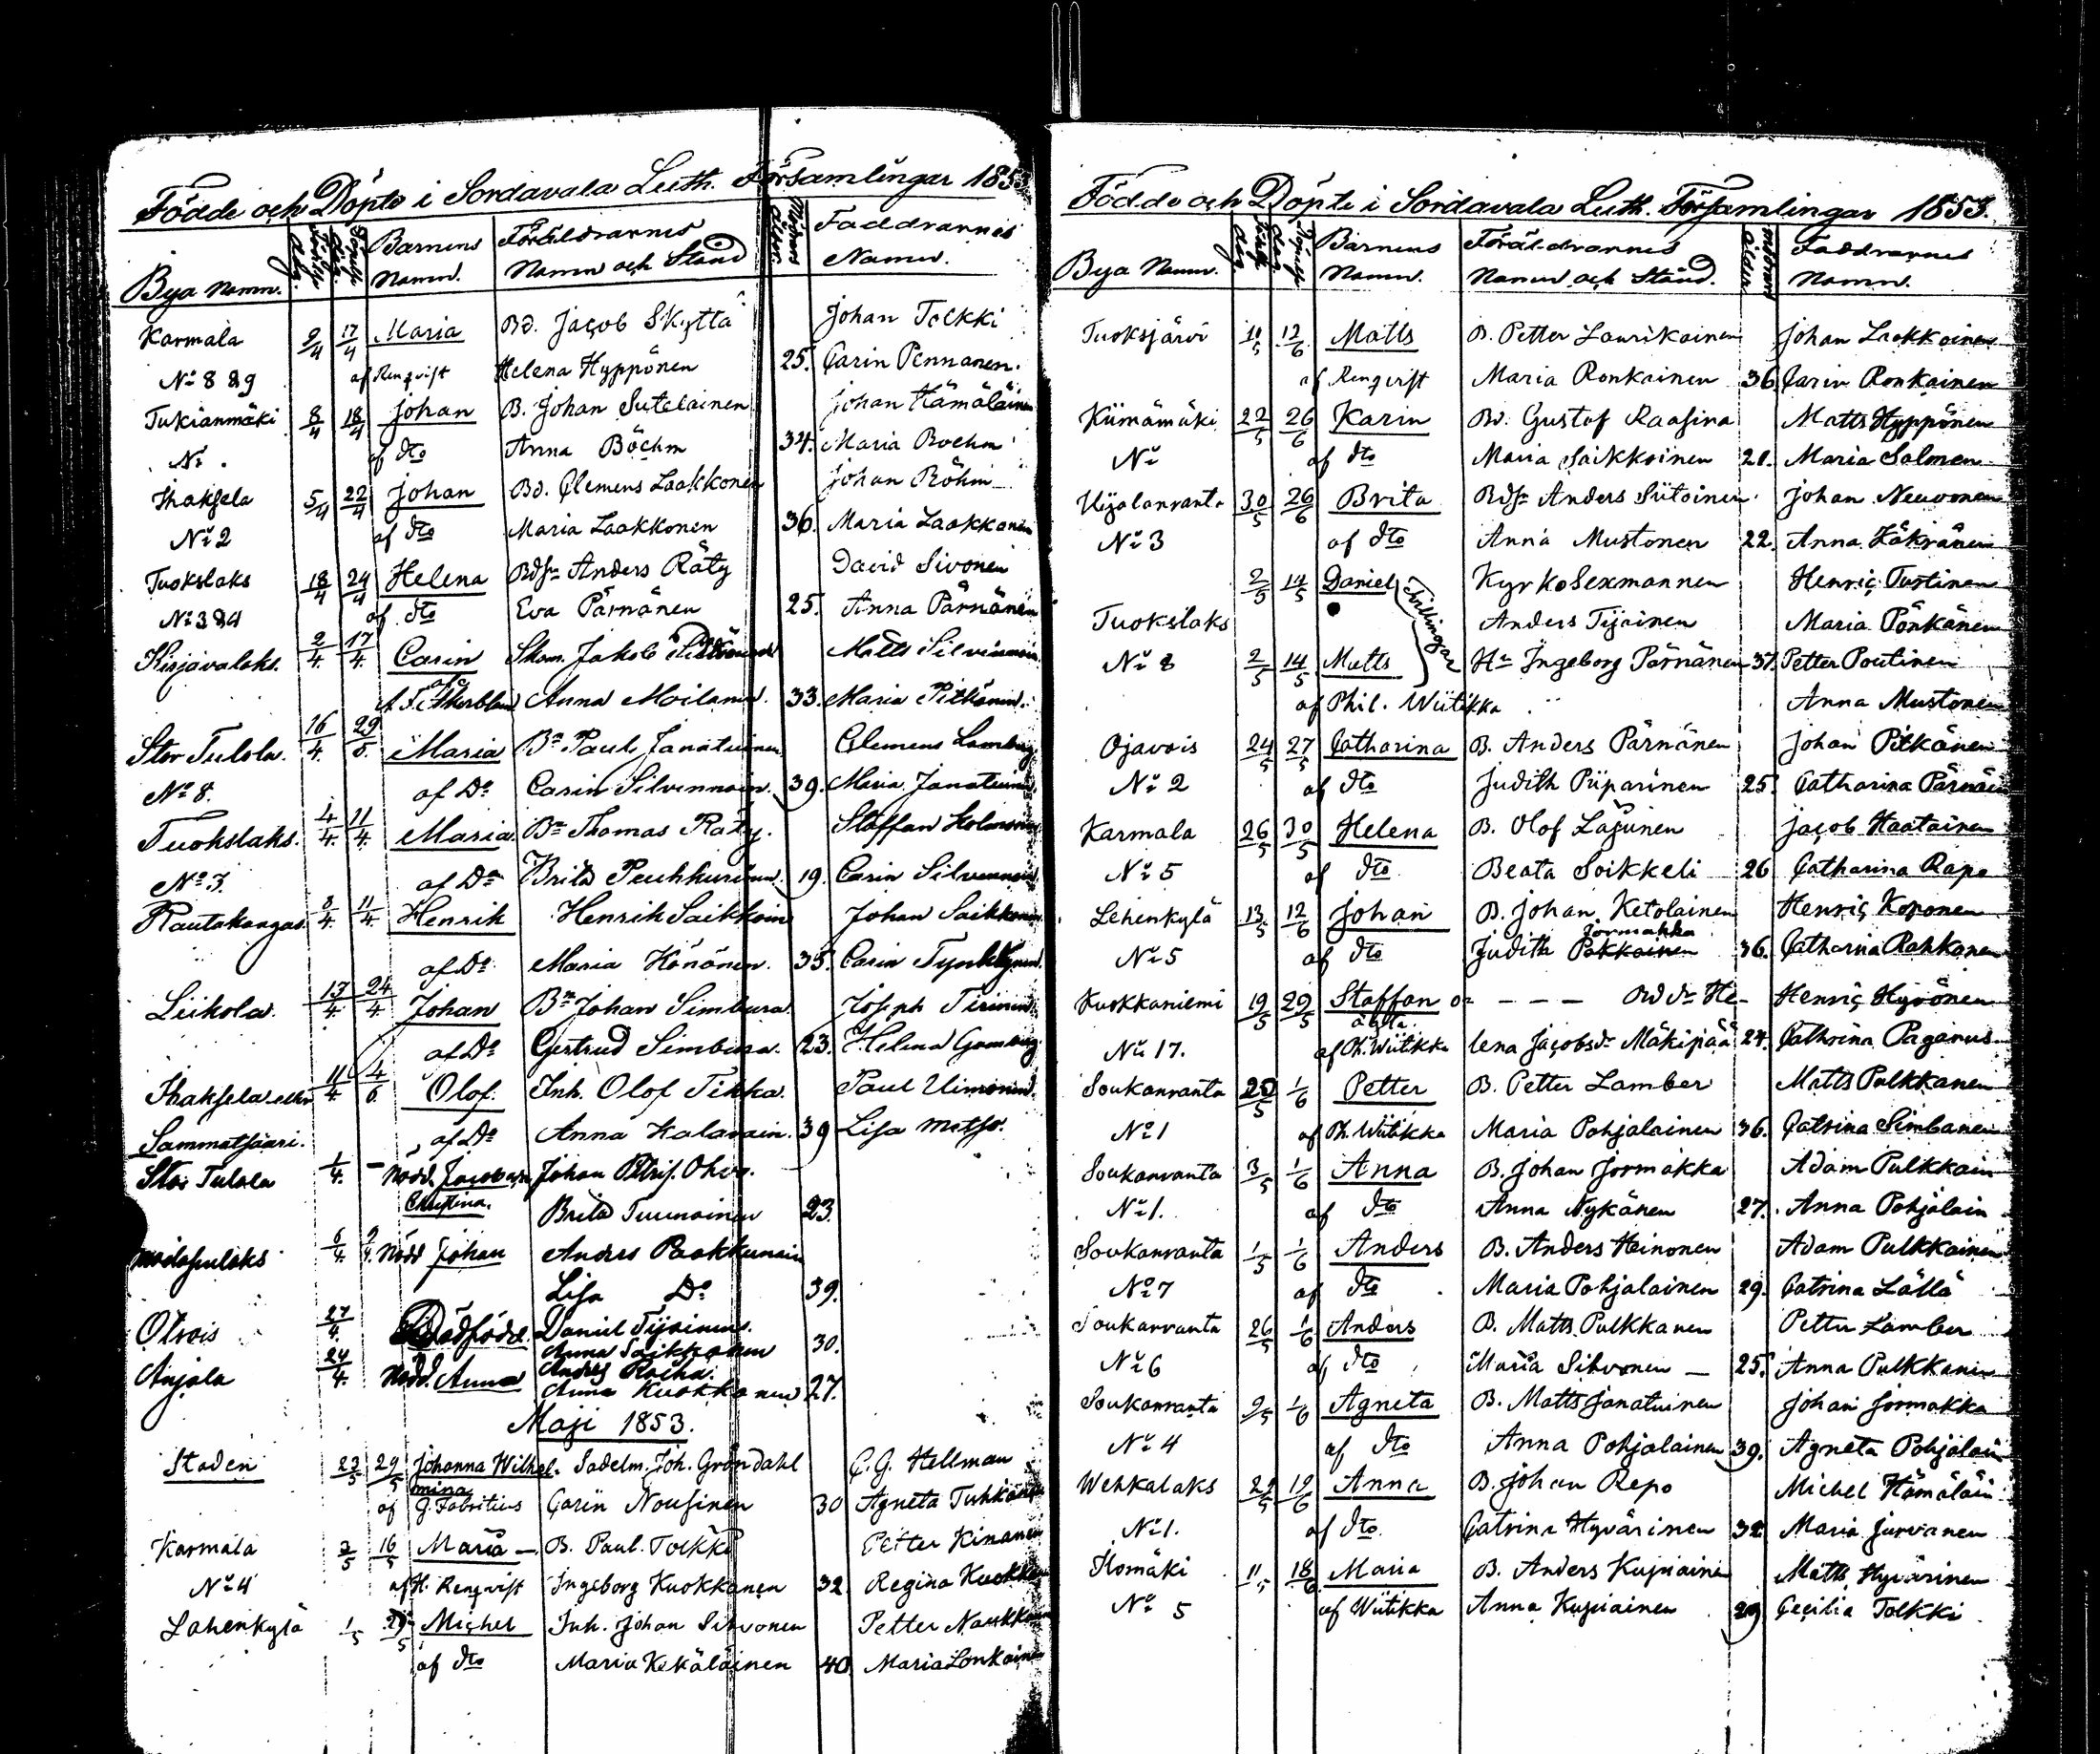 Födde och Döpte i Sordavala Luth. Församlingar 1853
Bya Namn. Födelse Dag. Döpelse Dag. Barnens Namn. Föräldrarnes Namn och Stånd Modrens Ålder. Faddrarnes Namn.
Karmala 9/4 17/4 Maria Bd. Jacob Skyttä Johan Tolkki
No 8 & 9 af Renqvist Helena Hyppönen 25. Carin Pennanen.
Tukianmäki 8/4 18/4 Johan B. Johan Sutelainen Johan Hämäläinen
No. af dto Anna Böehm 34. Maria Boehm
Ihaksela 5/4 22/4 Johan Bd. Clemens Laakkonen Johan Böhm
No 2 af dto Maria Laakkonen 36. Maria Laakkonen
Tuokslaks 18/4 24/4 Helena Bdsn Anders Räty David Sivonen
No 3 & 4 af dto Eva Pärnänen 25. Anna Pärnänen
Kirjavalaks. 2/4 17/4 Carin Skom. Jakob Matts Silvennoin
af Anna Moilanen. 33. Maria Pitkänen.
Stor Tulola. 16/4. 29/5. Maria Bn Paul Janatuinen Clemens Lamberg
No 8. af Do Carin Silvennoin. 39. Maria Janatuinen.
Tuokslaks. 4/4. 11/4. Maria. Bn Thomas Räty. Staffan Holmström
No 3. af Do Brita Puhkurinen. 19. Carin Silvennoin.
Rautakangas 8/4. 11/4. Henrik Henrik Saikkoin Johan Saikkonen
af Do Maria Könönen. 35. Carin
Liikola. 13/4 24/4 Johan Bn Johan Simbura. Joseph
af Do Gertrud Simbura. 23. Helena
Ihaksela eller 11/4 4/6. Olof. Inh. Olof Tikka. Paul Uimonen.
Sammatsaari. af Do Anna Kalavain. 39 Lisa
Stor Tulola 1/4. – Nödd. Jacobina Johan Petris. Ohvo.
Christina. Brita Tuunainen 23.
6/4 9/4. Nödd Johan Andrs Paakkunain
Lisa Do 39.
Otrois 27/4. Dödfödd. Daniel Tijainen.
Anna Saikkonen 30.
Anjala 24/4. Nödd. Anna Andrs Rocka.
Anna Kuokkanen 27.
Maji 1853.
Staden 23/5 29/5 Johanna Wilhel- Sadelm. Joh. Gröndahl C. G. Hellman
mina
af J. Fabritius Carin Nousinen 30 Agneta Tuhkanen
Karmala 2/5 16/5 Maria – B. Paul. Tolkki Petter Kinanen
No 4 af H. Renqvist Ingeborg Kuokkanen 32. Regina Kuokkan
Lahenkylä 1/5 29/5 Michel Inh. Johan Silvonen Petter Naukkar
af dto Maria Kekäläinen 40. Maria Lonkainen
Födde och Döpte i Sordavala Luth. Församlingar 1853.
Bya Namn. Födelse Dag Döpelse Dag Barnens Namn. Föräldrarnes Namn och Stånd. Modrens Ålder. Faddrarnes Namn.
Tuoksjärvi 11/5 12/6 Matts B. Petter Laurikainen Johan Laakkoinen
af Renqvist Maria Ronkainen 36. Carin Ronkainen
Kiimämäki 22/5 26/6 Karin Bd. Gustof Raasina Matts Hyppönen
No af dto Maria Saikkoinen 21. Maria Salmen
Uijalanranta 30/5 26/6 Brita Bdsn Anders Siitoinen. Johan Neuvonen
No 3 af dto Anna Mustonen 22. Anna Häkränen
2/5 14/5 Daniel Kyrko Sexmannen Henric Tustinen
Tuokslaks Tvillingar Anders Tijainen Maria Pönkänen
No 8 2/5 14/5 Matts Hu Ingeborg Pärnänen 37. Petter Poutinen
af Phil. Wiitikka Anna Mustonen
Ojavois 24/5 27/5 Catharina B. Anders Pärnänen Johan Pitkänen
No 2 af dto Judith Piiparinen 25. Catharina Pärnäin
Karmala 26/5 30/5 Helena B. Olof Lagunen Jacob Haatainen
No 5 af dto Beata Soikkeli 26 Catharina Rapo
Lehenkylä 13/5 12/6 Johan B. Johan Ketolainen Henric Koponen
Jormakka
No 5 af dto Judith Pakkainen 36. Catharina Rahkonen
Kuokkaniemi 19/5 29/5 Staffan oä – – – Bd dr He- Henric Hyvönen
ägta.
No 17. af Ph. Wiitikka lena Jacobsdr Mäkipää 24. Cathrina Paganus
Soukanranta 20/5 1/6 Petter B. Petter Lamber Matts Pulkkanen
No 1 af Ph. Wiitikka Maria Pohjalainen 36. Catrina Simbanen
Soukanranta 3/5 1/6 Anna B. Johan Jormakka Adam Pulkkain
No 1. af dto Anna Nykänen 27. Anna Pohjalain
Soukanranta 1/5 1/6 Anders B. Anders Heinonen Adam Pulkkainen
No 7 af dto Maria Pohjalainen 29. Catrina Lällä
Soukanranta 26/5 1/6 Anders B. Matts Pulkkanen Petter Lamber
No 6 af dto Maria Silvonen – 25. Anna Pulkkanen
Soukanranta 9/5 1/6 Agneta B. Matts Janatuinen Johan Jormakka
No 4 af dto Anna Pohjalainen 39. Agneta Pohjalain
Wehkalaks 29/5 19/6 Anna B. Johan Repo Michel Hämäläin
No 1. af dto. Catrina Hyvärinen 32 Maria Jurvanen
Ilomäki 11/5 18/6 Maria B. Anders Kupiainen Matts Hyvärinen
No 5 af Wiitikka Anna Kupiainen 29 Cecilia Tolkki